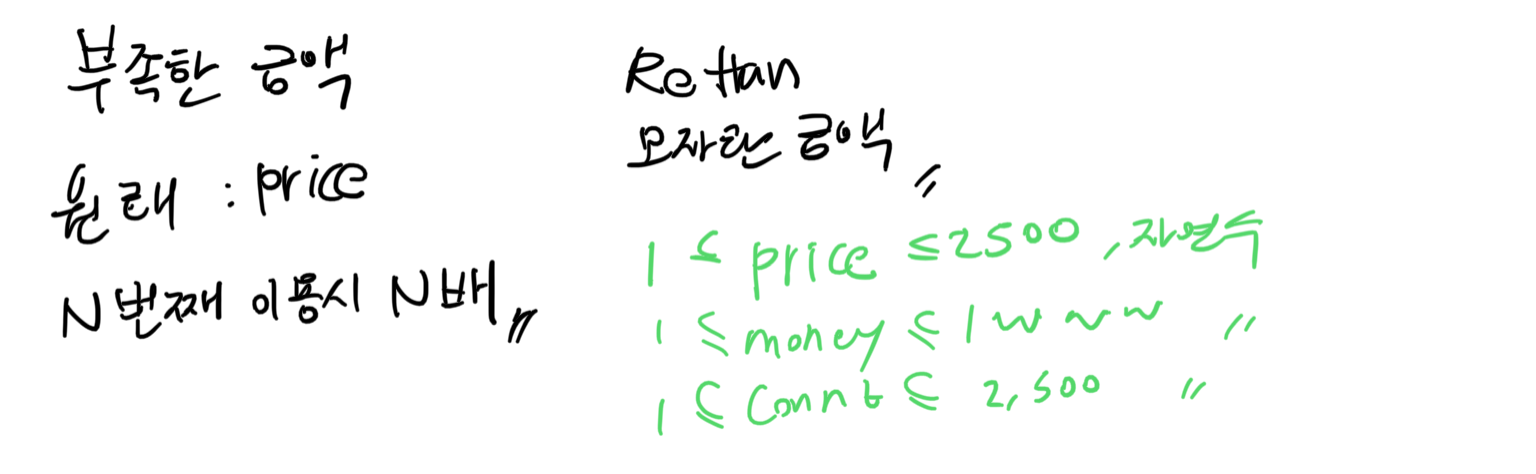 부족한 금액
원래 : price
N번째 이용시 N배 〃
Rettan
모자란 금액 〃
1 ≤ price ≤ 2500 , 자연수
1 ≤ money ≤ 〃
1 ≤ Connt ≤ 2,500 〃